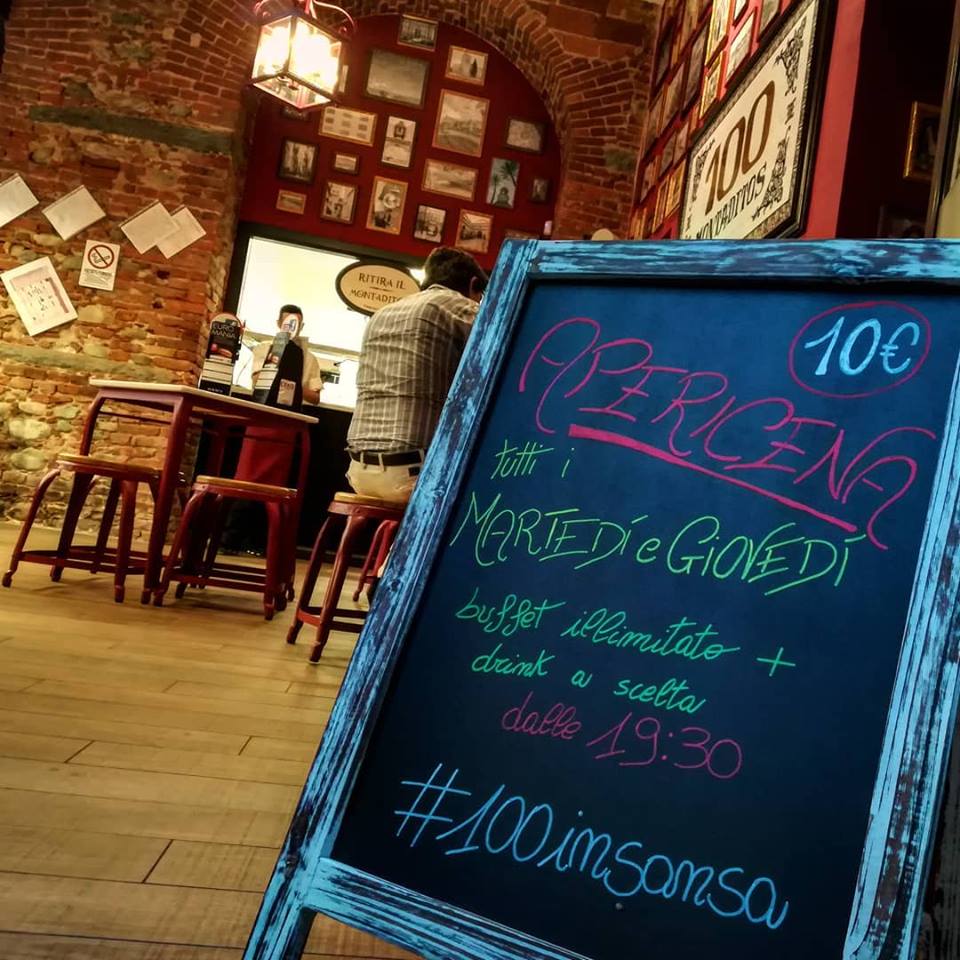 100
MONTADITOS
RITIRA IL
MONTADITO
EURO
MANIA
10€
APERICENA
tutti i
MARTEDÍ e GIOVEDÍ
buffet illimitato +
drink a scelta
dalle 19:30
#100insansa